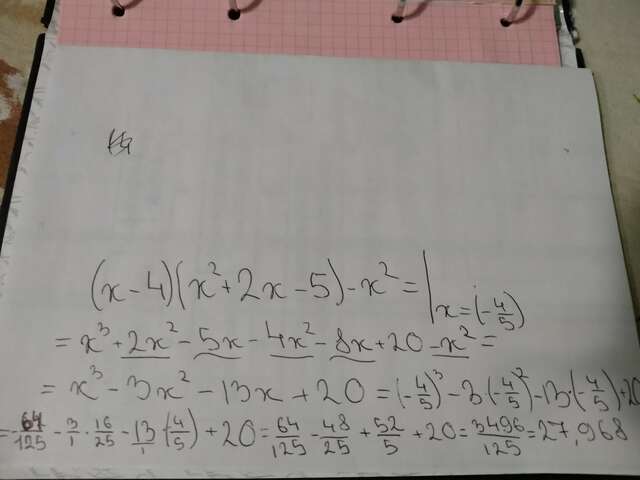 (x-4)(x²+2x-5)-x²=|x=(-4/5)
=x³+2x²-5x-4x²-8x+20-x²=
=x³-3x²-13x+20=(-4/5)³-3·(-4/5)²-13·(-4/5)+20
=-64/125-3/1·16/25-13/1·(-4/5)+20=-64/125-48/25+52/5+20=3496/125=27,968